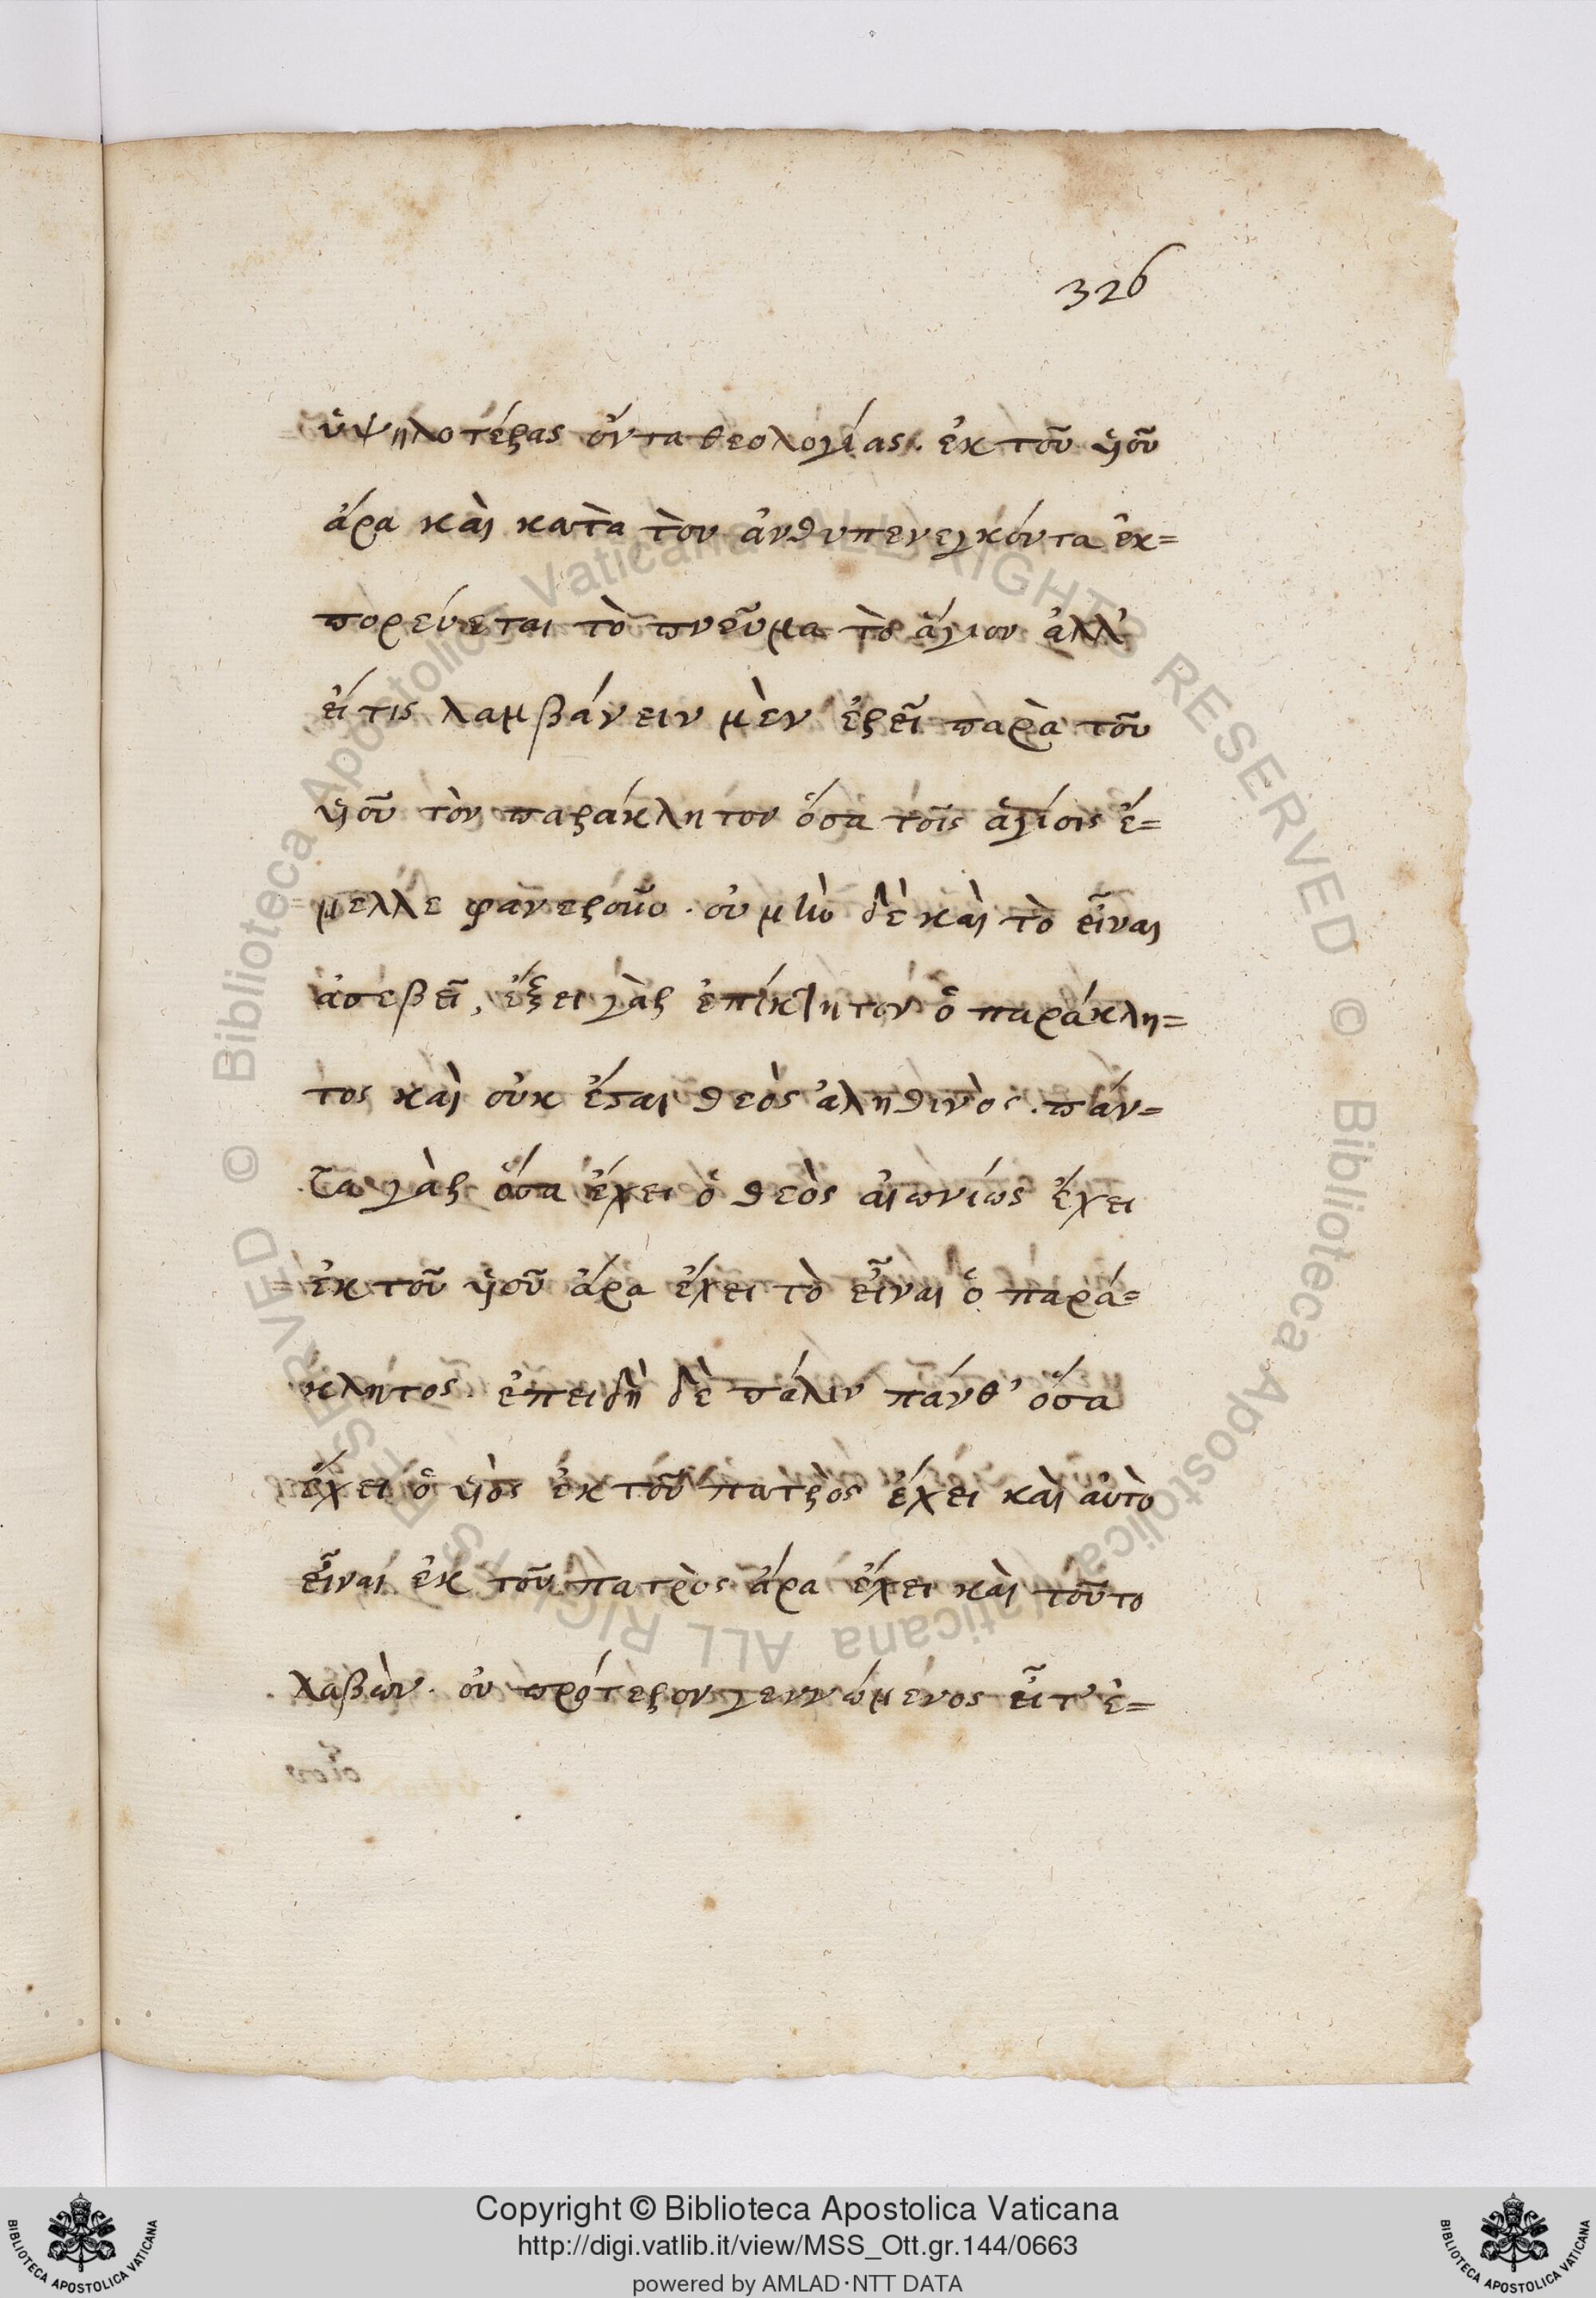 326
ὑψηλοτέρας ὄντα θεολογίας. ἐκ τοῦ ὑιοῦ
ἄρα καὶ κατὰ τὸν ἀνθυπενεγκόντα ἐκ=
πορεύεται τὸ πνεῦμα τὸ ἅγιον ἀλλ'
εἴ τις λαμβάνειν μὲν ἐρεῖ παρὰ τοῦ
ὑιοῦ τὸν παράκλητον ὅσα τοῖς ἁγίοις ἔ=
μελλε φανεροῦν. οὐ μὴν δὲ καὶ τὸ εἶναι
ἀσεβεῖ, ἕξει γὰρ ἐπίκλητον ὁ παράκλη=
τος καὶ οὐκ ἔσται θεὸς ἀληθινὸς. πάν=
τα γὰρ ὅσα ἔχει ὁ θεὸς αἰωνίως ἔχει
ἐκ τοῦ ὑιοῦ ἄρα ἔχει τὸ εἶναι ὁ παρά=
κλητος. ἐπειδὴ δὲ πάλιν πάνθ' ὅσα
ἔχει ὁ ὑιὸς ἐκ τοῦ πατρὸς ἔχει καὶ αὐτὸ
εἶναι ἐκ τοῦ πατρὸς ἄρα ἔχει καὶ τοῦτο
λαβὼν. οὐ πρότερον γεννώμενος εἶτ' ἐ=
Copyright © Biblioteca Apostolica Vaticana
http://digi.vatlib.it/view/MSS_Ott.gr.144/0663
powered by AMLAD·NTT DATA
BIBLIOTECA APOSTOLICA VATICANA
BIBLIOTECA APOSTOLICA VATICANA
© Biblioteca Apostolica Vaticana ALL RIGHTS RESERVED
© Biblioteca Apostolica Vaticana ALL RIGHTS RESERVED